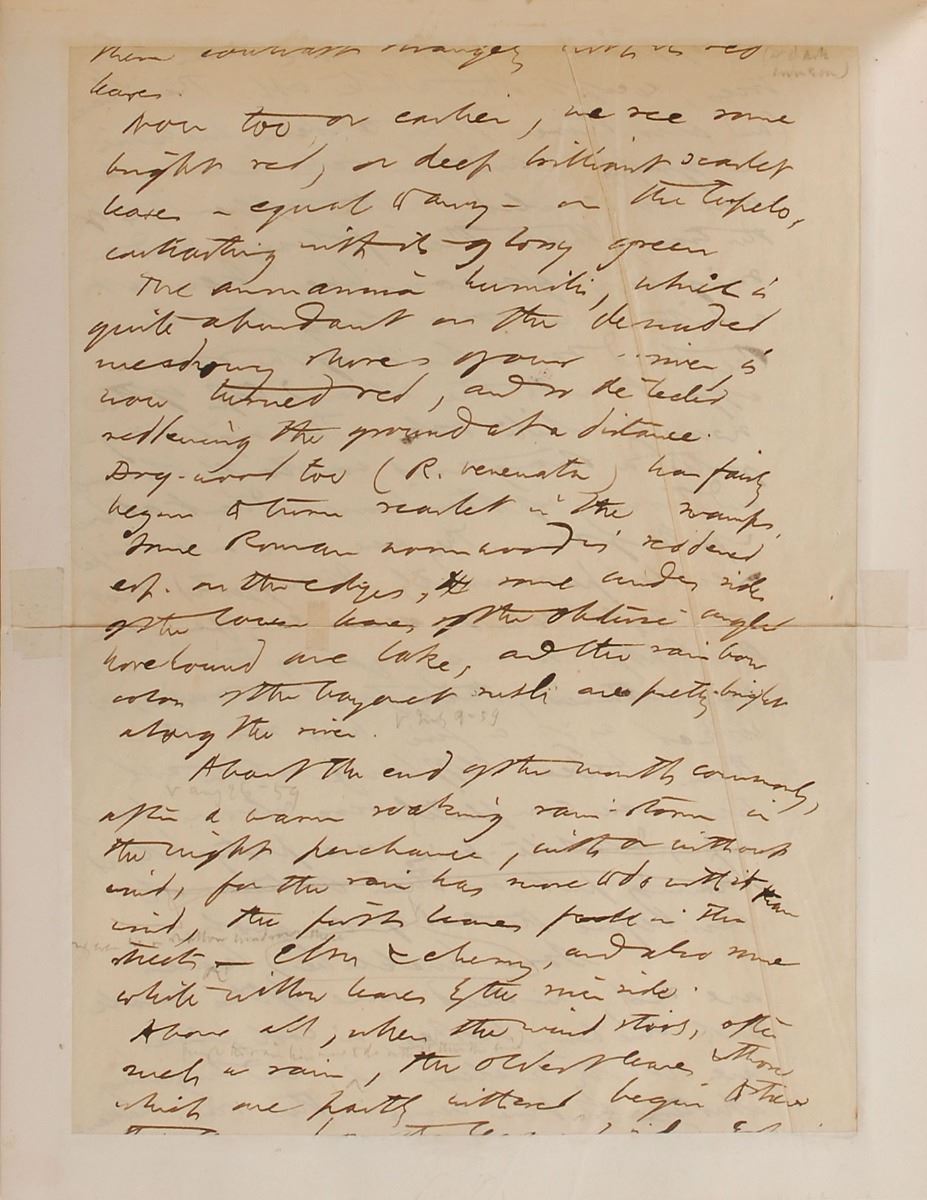 them contrast strangely with its red
leaves.
Now too, or earlier, we see some
bright red, or deep brilliant scarlet
leaves – equal to any – on the tupelo,
contrasting with its glossy green
The ammannia humilis, which is
quite abundant on the denuded
meadowy shores of our river, is
now turned red, and so detected
reddening the ground at a distance.
Dog-wood too (R. venenata) has fairly
begun to turn scarlet in the swamps.
Some Roman wormwood is reddened
esp. on the edges, some under sides
of the lower leaves of the obtuse angled
horehound are lake, and the rainbow
colors of the bayonet rush are pretty bright
along the river.
v July 9-59
About the end of the month commonly,
v aug 26-59
after a warm soaking rain-storm in
the night perchance, with or without
wind, for the rain has more to do with it than
wind, the first leaves fall in the
streets – Elm & cherry, and also some
white-willow leaves by the river side.
Above all, when the wind stirs, after
such a rain, the oldest leaves & those
which are partly withered begin to